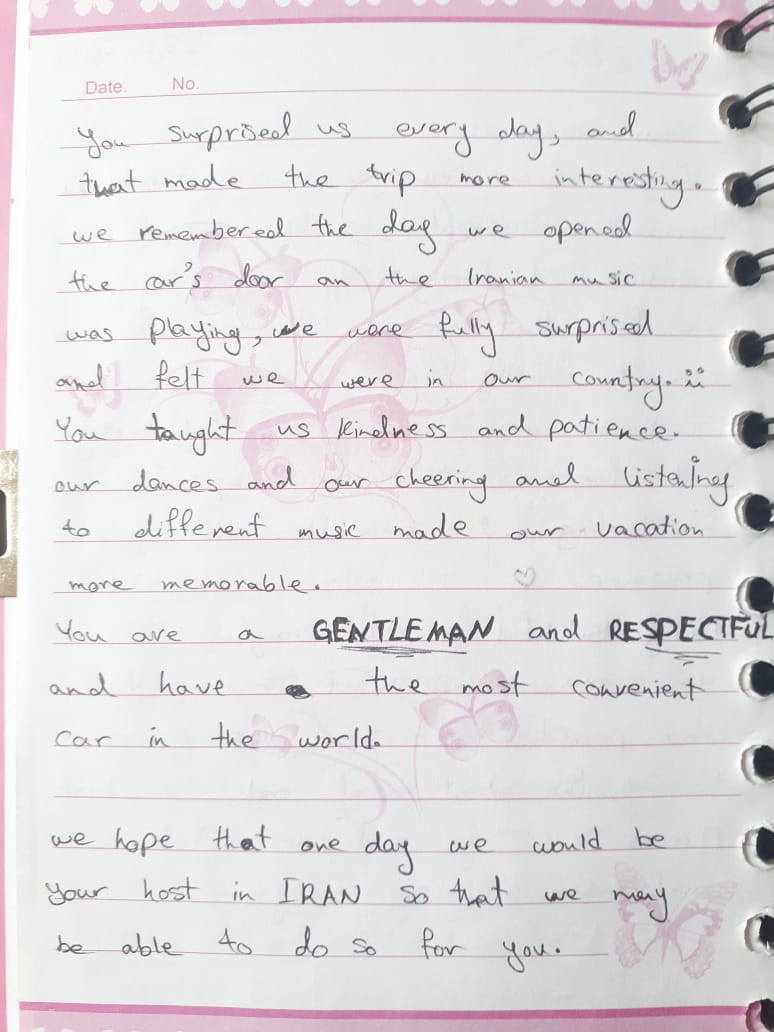 Date. No.
You surprised us every day, and
that made the trip more interesting.
we remembered the day we opened
the car's door an the Iranian music
was playing, we were fully surprised
and felt we were in our country. ü
You taught us kindness and patience.
our dances and our cheering and listening
to different music made our vacation
more memorable. ♡
You are a GENTLEMAN and RESPECTFUL
and have the most convenient
car in the world.
we hope that one day we would be
your host in IRAN so that we may
be able to do so for you.